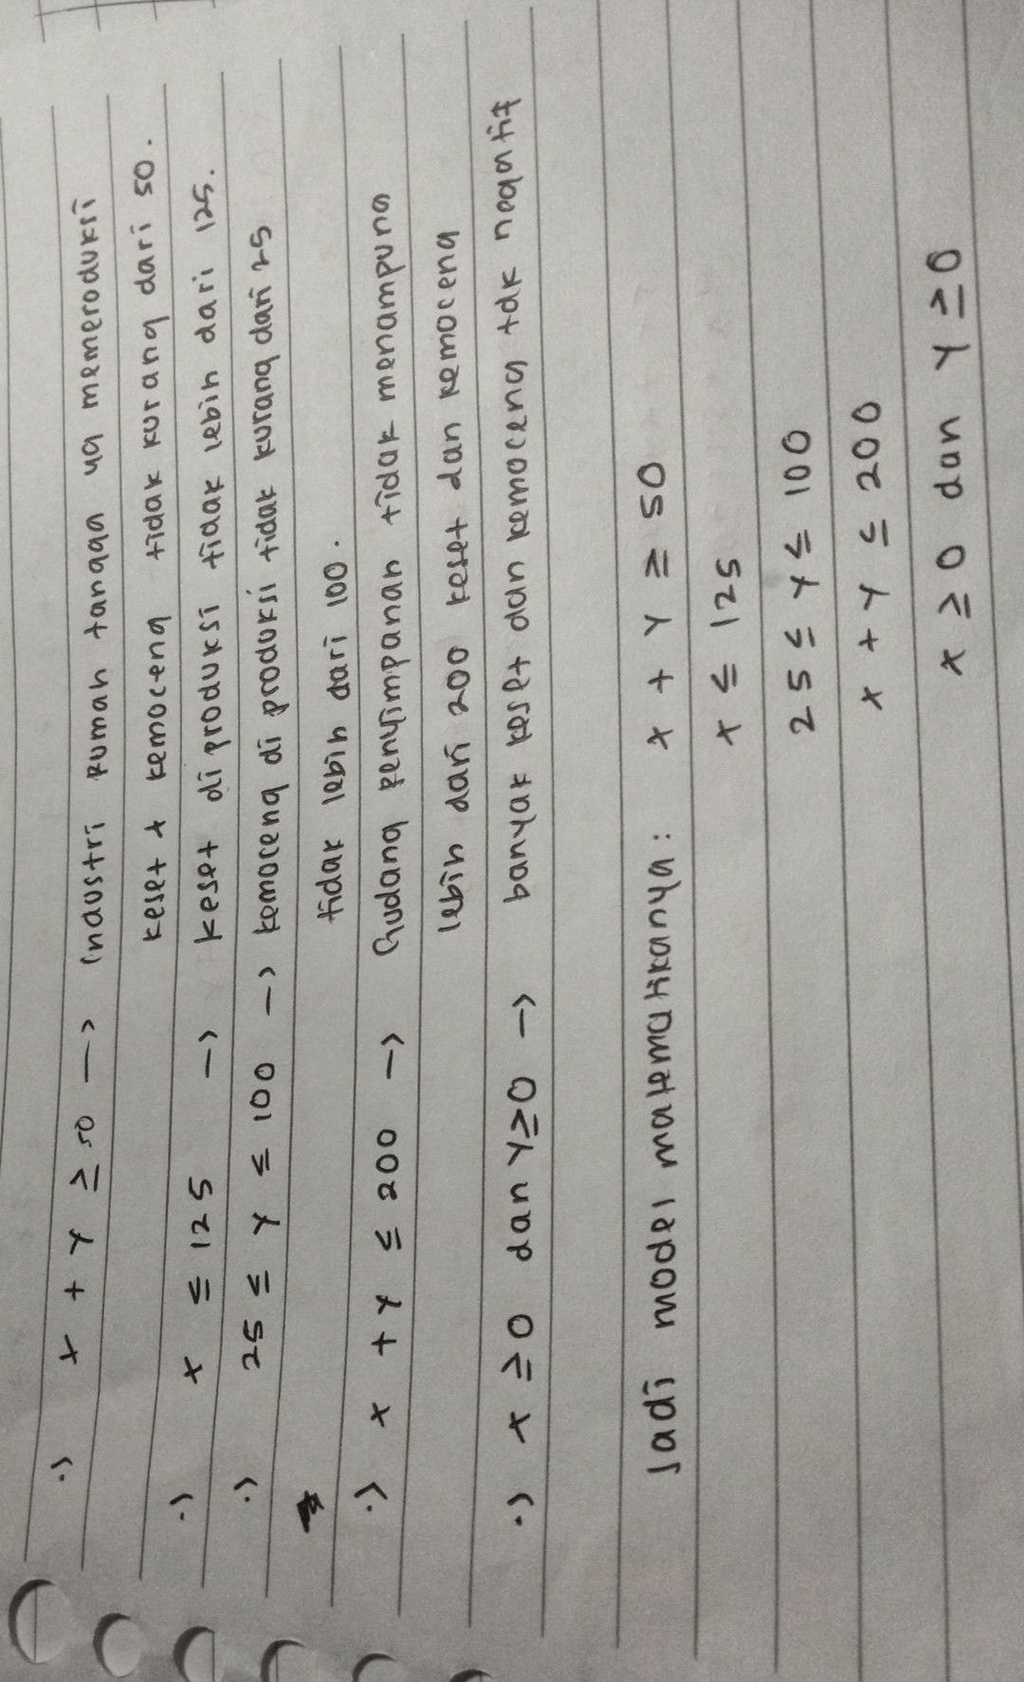 .) x + y ≥ 50 —> Industri rumah tangga yg memeroduksi
keset + kemoceng tidak kurang dari 50.
.) x ≤ 125 —> keset di produksi tidak lebih dari 125.
.) 25 ≤ y ≤ 100 —> kemoceng di produksi tidak kurang dari 25
tidak lebih dari 100.
.) x + y ≤ 200 —> Gudang penyimpanan tidak menampung
lebih dari 200 keset dan kemoceng
.) x ≥ 0 dan y ≥ 0 —> banyak keset dan kemoceng tdk negatif
Jadi model matematikanya : x + y ≥ 50
x ≤ 125
25 ≤ y ≤ 100
x + y ≤ 200
x ≥ 0 dan y ≥ 0